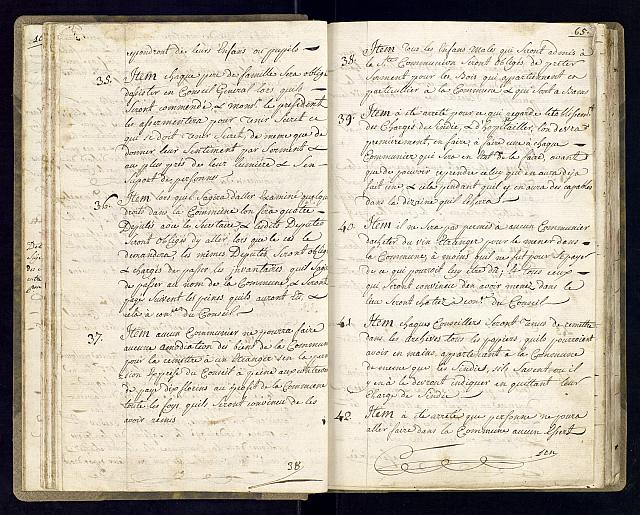 repondront de leurs Enfans ou pupils
35. Item chaque pere de famille sera obligé
d'assister en Conseil General lors quils
Seront commendé, & mons.r le president
les assermentera pour tenir Secret ce
qui se doit tenir Secret, de meme que de
donner leur Sentiment par Serment &
au plus près de leur lumiere & Sen
Suport de personnes
36. Item lors quil Sagira d'aller Examiné quelque
droit dans la Commune lon fera quatre
Deputés avec le Secretaire, & lesdits Deputés
Seront obligés dy aller lors que le cas le
demandera, les mêmes Deputés Seront obligé
& chargés de passer les inventaires quil Sagira
de passer au nom de la Commune, & Seront
payé Suivent les peines quils auront eu, &
cela à du Conseil
37. Item aucun Communier ne pourra faire
aucune amodiation du bient de la Commune
pour la remettre à un Etranger Sen la permis
sion Expresse du Conseil à peine aux
de paye dix florins au profit de la Commune
toute les foys quils Seront convincu de les
avoir remis
38
65.
38. Item tous les Enfans Males qui Seront admis à
la S.te Communion Seront obligés de preter
Serment pour les Bois qui appartienent en
particullier à la Commune & qui Sont à Bans
39. Item à ete arreté pour ce qui regarde letablissem.t
des Charges de Sindic, & d'hopitallier, lon devra
premierement, en faire, à faire une à chaque
Communier qui Sera en Etat de la faire, avant
que de pouvoir reprendre celuy qui en aura deja
fait une, & cela pendant quil y en aura des capables
dans la dizaine quil Elira
40. Item il ne Sera pas permis à aucun Communier
dacheter du vin Etranger pour le mener dans
la Commune, à moins quil ne fut pour le payer
de ce qui pourroit luy etre dû; & tous ceux
qui Seront convincu den avoir mené dans le
lieu Seront chatié à du Conseil
41. Item chaques Conseillers Seront tenus de remettre
dans les archives tous les papiers, quils pourroient
avoir en mains, appartenant à la Commune
de meme que les Sindics, sils Savent ou il
y en a le devront indiquer en quittant leur
charge de Sindic
42. Item à ete arreté que personne ne pourra
aller faire dans la Commune aucun Esert
Sen